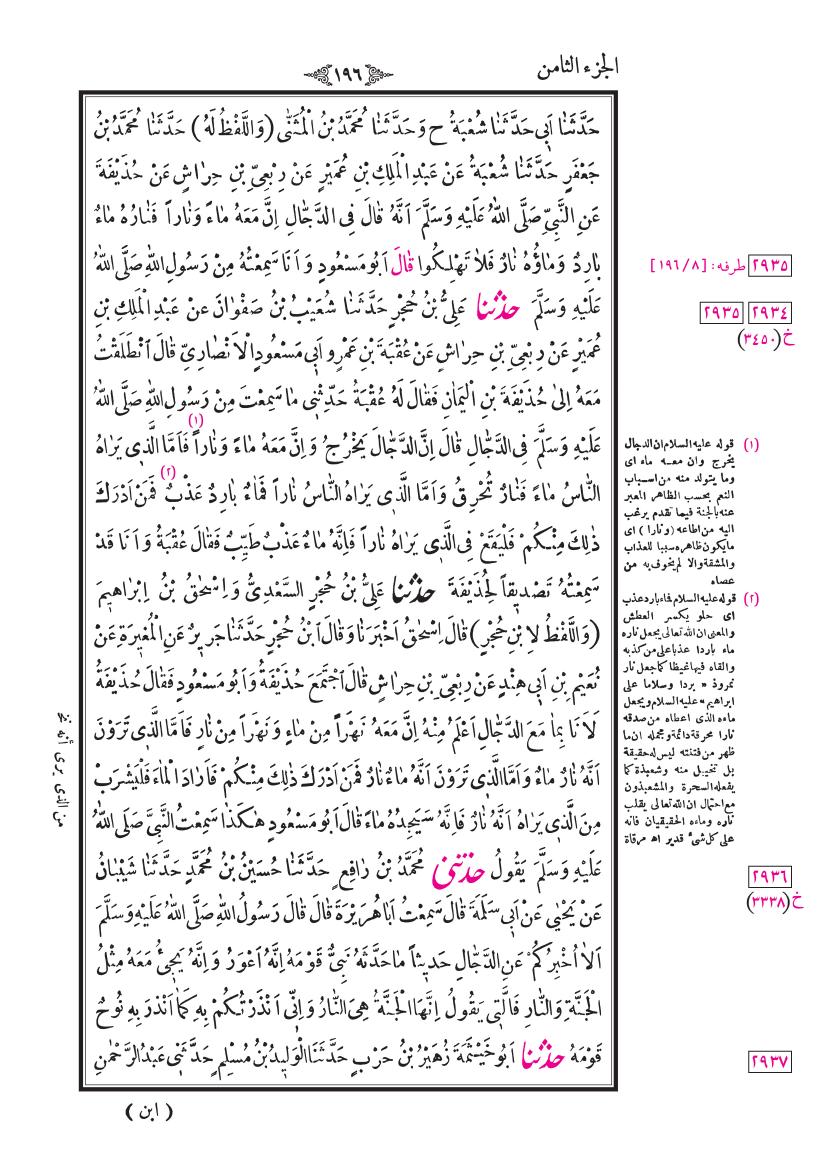 الجزء الثامن
١٩٦
حَدَّثَنَا اَبِي حَدَّثَنَا شُعْبَةُ ح وَحَدَّثَنَا مُحَمَّدُ بْنُ الْمُثَنَّى (وَاللَّفْظُ لَهُ) حَدَّثَنَا مُحَمَّدُ بْنُ
جَعْفَرٍ حَدَّثَنَا شُعْبَةُ عَنْ عَبْدِ الْمَلِكِ بْنِ عُمَيْرٍ عَنْ رِبْعِيِّ بْنِ حِرَاشٍ عَنْ حُذَيْفَةَ
عَنِ النَّبِيِّ صَلَّى اللّٰهُ عَلَيْهِ وَسَلَّمَ اَنَّهُ قَالَ فِي الدَّجَّالِ اِنَّ مَعَهُ مَاءً وَنَاراً فَنَارُهُ مَاءٌ
بَارِدٌ وَمَاؤُهُ نَارٌ فَلَا تَهْلِكُوا قَالَ اَبُو مَسْعُودٍ وَاَنَا سَمِعْتُهُ مِنْ رَسُولِ اللّٰهِ صَلَّى اللّٰهُ
عَلَيْهِ وَسَلَّمَ حَدَّثَنَا عَلِيُّ بْنُ حُجْرٍ حَدَّثَنَا شُعَيْبُ بْنُ صَفْوَانَ عَنْ عَبْدِ الْمَلِكِ بْنِ
عُمَيْرٍ عَنْ رِبْعِيِّ بْنِ حِرَاشٍ عَنْ عُقْبَةَ بْنِ عَمْرٍو اَبِي مَسْعُودٍ الْاَنْصَارِيِّ قَالَ انْطَلَقْتُ
مَعَهُ اِلَى حُذَيْفَةَ بْنِ الْيَمَانِ فَقَالَ لَهُ عُقْبَةُ حَدِّثْنِي مَا سَمِعْتَ مِنْ رَسُولِ اللّٰهِ صَلَّى اللّٰهُ
عَلَيْهِ وَسَلَّمَ فِي الدَّجَّالِ قَالَ اِنَّ الدَّجَّالَ يَخْرُجُ وَاِنَّ مَعَهُ مَاءً وَنَاراً (١) فَاَمَّا الَّذِي يَرَاهُ
النَّاسُ مَاءً فَنَارٌ تُحْرِقُ وَاَمَّا الَّذِي يَرَاهُ النَّاسُ نَاراً فَمَاءٌ بَارِدٌ عَذْبٌ (٢) فَمَنْ اَدْرَكَ
ذٰلِكَ مِنْكُمْ فَلْيَقَعْ فِي الَّذِي يَرَاهُ نَاراً فَاِنَّهُ مَاءٌ عَذْبٌ طَيِّبٌ فَقَالَ عُقْبَةُ وَاَنَا قَدْ
سَمِعْتُهُ تَصْدِيقاً لِحُذَيْفَةَ حَدَّثَنَا عَلِيُّ بْنُ حُجْرٍ السَّعْدِيُّ وَاِسْحٰقُ بْنُ اِبْرَاهِيمَ
(وَاللَّفْظُ لِابْنِ حُجْرٍ) قَالَ اِسْحٰقُ اَخْبَرَنَا وَقَالَ ابْنُ حُجْرٍ حَدَّثَنَا جَرِيرٌ عَنِ الْمُغِيرَةِ عَنْ
نُعَيْمِ بْنِ اَبِي هِنْدٍ عَنْ رِبْعِيِّ بْنِ حِرَاشٍ قَالَ اجْتَمَعَ حُذَيْفَةُ وَاَبُو مَسْعُودٍ فَقَالَ حُذَيْفَةُ
لَاَنَا بِمَا مَعَ الدَّجَّالِ اَعْلَمُ مِنْهُ اِنَّ مَعَهُ نَهْراً مِنْ مَاءٍ وَنَهْراً مِنْ نَارٍ فَاَمَّا الَّذِي تَرَوْنَ
اَنَّهُ نَارٌ مَاءٌ وَاَمَّا الَّذِي تَرَوْنَ اَنَّهُ مَاءٌ نَارٌ فَمَنْ اَدْرَكَ ذٰلِكَ مِنْكُمْ فَاَرَادَ الْمَاءَ فَلْيَشْرَبْ
مِنَ الَّذِي يَرَاهُ اَنَّهُ نَارٌ فَاِنَّهُ سَيَجِدُهُ مَاءً قَالَ اَبُو مَسْعُودٍ هٰكَذَا سَمِعْتُ النَّبِيَّ صَلَّى اللّٰهُ
عَلَيْهِ وَسَلَّمَ يَقُولُ حَدَّثَنِي مُحَمَّدُ بْنُ رَافِعٍ حَدَّثَنَا حُسَيْنُ بْنُ مُحَمَّدٍ حَدَّثَنَا شَيْبَانُ
عَنْ يَحْيَى عَنْ اَبِي سَلَمَةَ قَالَ سَمِعْتُ اَبَا هُرَيْرَةَ قَالَ قَالَ رَسُولُ اللّٰهِ صَلَّى اللّٰهُ عَلَيْهِ وَسَلَّمَ
اَلَا اُخْبِرُكُمْ عَنِ الدَّجَّالِ حَدِيثاً مَا حَدَّثَهُ نَبِيٌّ قَوْمَهُ اِنَّهُ اَعْوَرُ وَاِنَّهُ يَجِيءُ مَعَهُ مِثْلُ
الْجَنَّةِ وَالنَّارِ فَالَّتِي يَقُولُ اِنَّهَا الْجَنَّةُ هِيَ النَّارُ وَاِنِّي اَنْذَرْتُكُمْ بِهِ كَمَا اَنْذَرَ بِهِ نُوحٌ
قَوْمَهُ حَدَّثَنَا اَبُو خَيْثَمَةَ زُهَيْرُ بْنُ حَرْبٍ حَدَّثَنَا الْوَلِيدُ بْنُ مُسْلِمٍ حَدَّثَنِي عَبْدُ الرَّحْمٰنِ
( ابن )
٢٩٣٥ طرفه: [١٩٦/٨]
٢٩٣٤ ٢٩٣٥
خ (٣٤٥٠)
(١) قوله عليه السلام ان الدجال
يخرج وان معه ماء اى
وما يتولد منه من اسباب
النعم بحسب الظاهر المعبر
عنه بالجنة فيما تقدم يرغب
اليه من اطاعه (ونارا) اى
ما يكون ظاهره سببا للعذاب
والمشقة والالم يخوف به من
عصاه
(٢) قوله عليه السلام فماء بارد عذب
اى حلو يكسر العطش
والمعنى ان الله تعالى يجعل ناره
ماء باردا عذبا على من كذبه
والقاه فيها غيظا كما جعل نار
نمروذ » بردا وسلاما على
ابراهيم » عليه السلام ويجعل
ماءه الذى اعطاه من صدقه
نارا محرقة دائمة ومجمله ان ما
ظهر من فتنته ليس له حقيقة
بل تخييل منه وشعبذة كما
يفعله السحرة والمشعبذون
مع احتمال ان الله تعالى يقلب
ناره وماءه الحقيقيان فانه
على كل شىء قدير اه مرقاة
٢٩٣٦
خ (٣٣٣٨)
٢٩٣٧
من الذى يرى أنه نخ